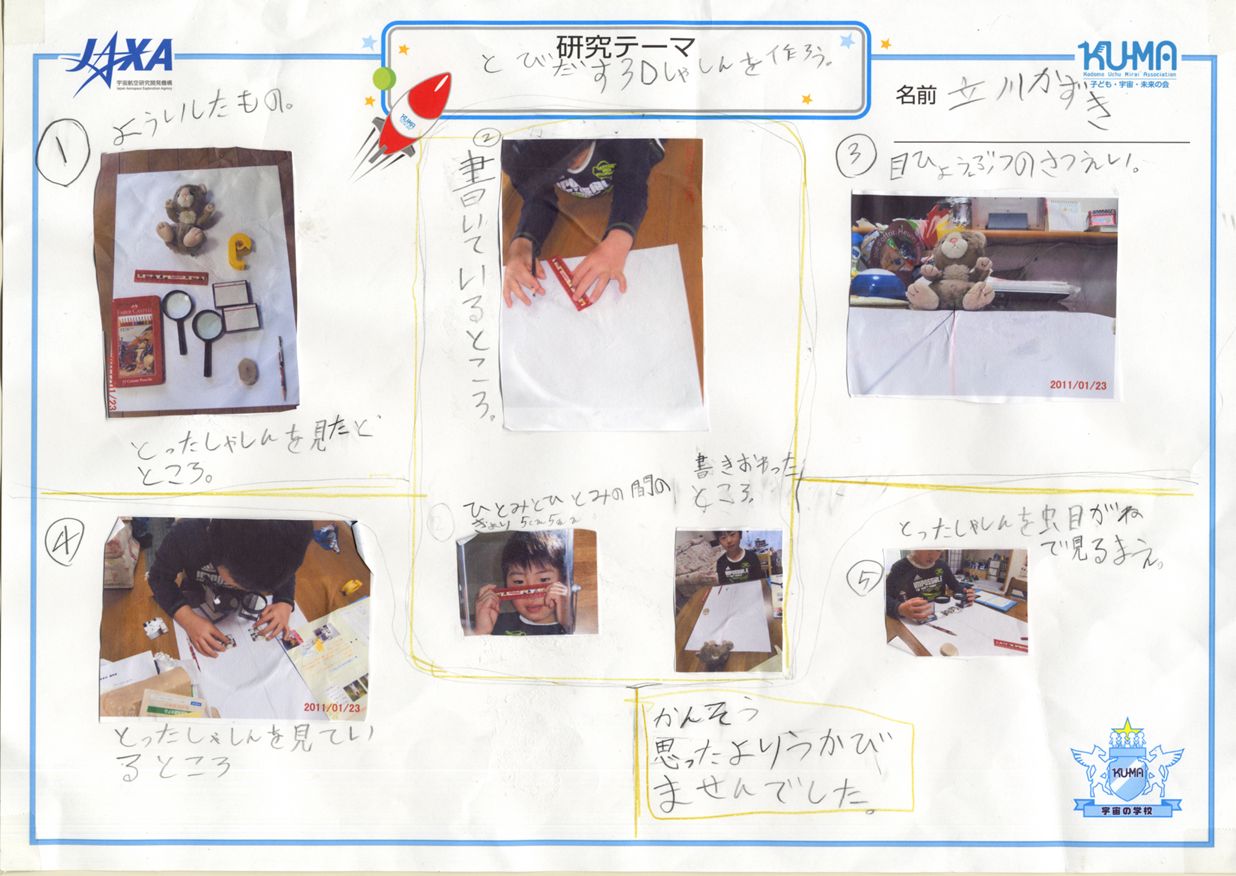 JAXA
宇宙航空研究開発機構
Japan Aerospace Exploration Agency
研究テーマ
とびだす3Dしゃしんを作ろう。
KUMA
Kodomo Uchu Mirai Association
子ども・宇宙・未来の会
名前 立川かずき
KUMA
①
よういしたもの。
FABER-CASTELL
とったしゃしんを見たど
ところ。
②
書いているところ。
ひとみとひとみの間の
きょり
書きおわった
ところ。
③
目ひょうぶつのさつえい。
2011/01/23
④
2011/01/23
とったしゃしんを見てい
るところ
⑤
とったしゃしんを虫目がね
で見るまえ。
IMPOSSIBLE
かんそう
思ったよりうかび
ませんでした。
KUMA
宇宙の学校